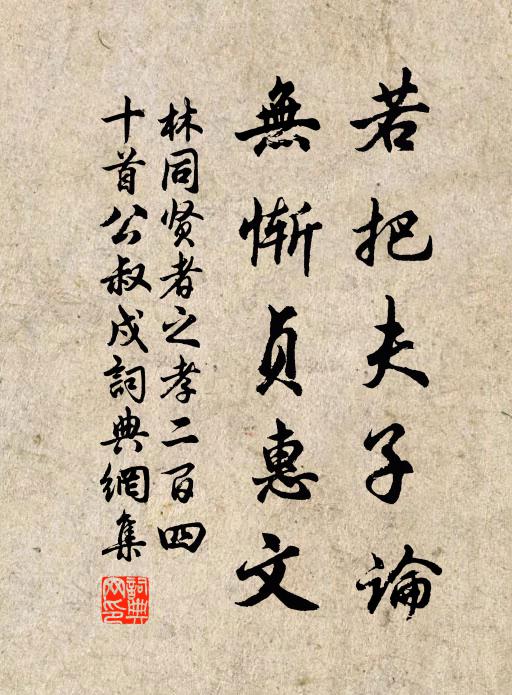 若把夫子論
無慚貞惠文
林同贤者之孝二百四
十首公叔戍詞典網集
詞典
网印